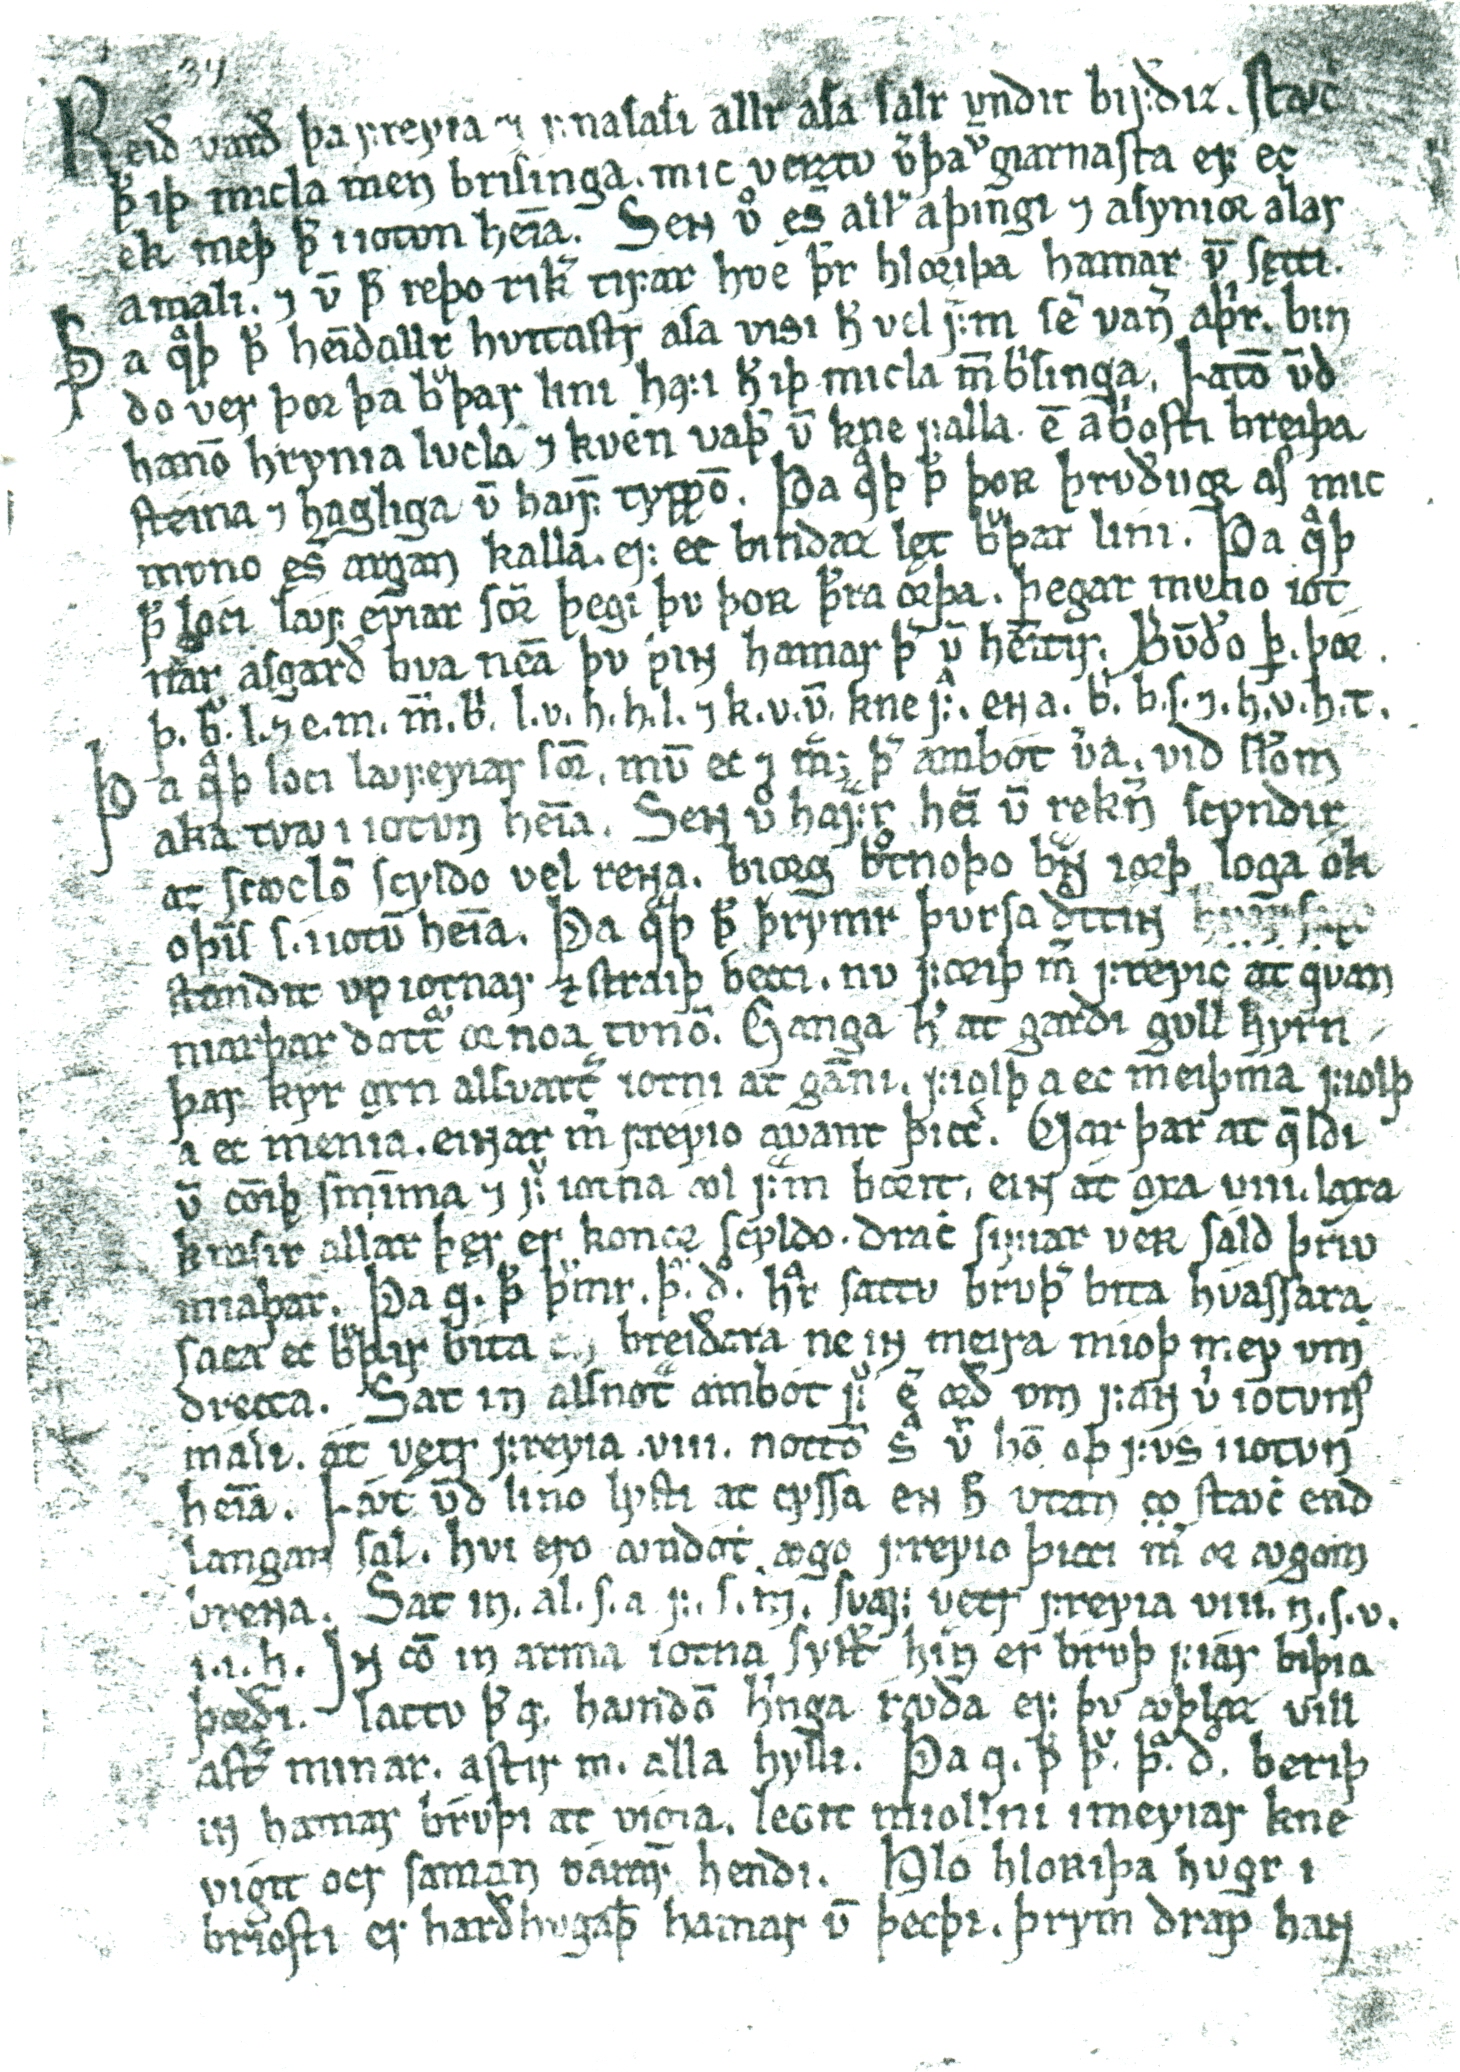 34
Reið varð þa freyia ⁊ fnasaði allr asa salr vndir bifðiz. stꜹc
þ̄ iþ micla men brisinga. mic veiztv v̓þa v̓giarnasta ef ec
ek meþ þ̄ iiotvn hēia. Senn vͦ ęs̄ all͛ aþingi ⁊ asynior allar
amali. ⁊ v̄ þ̄ reþo rik͛ tifar hve þ̄r hloriþa hamar v̄ sętti.
Þa qͣþ þ̄ hēidallr hvitastr asa vissi h̄ vel fᷓm sē van͛ aþ͛r. bin
do ver þor þa bͮþar lini hafi h̄ iþ micla m̄ b͛singa. Latō v̄d
hanō hrynia lvcla ⁊ kvenn vaþ͛ v̄ kne falla. ē ab͛osti breiþa
steina ⁊ hagliga v̄ hꜹf̄. typpō. Þa qͣþ þ̄ þoʀ þrvðugr as mic
mvno ęs̄ argan kalla. ef ec bindaz lęt bͮþar lini. Þa qͣþ
þ̄ loci lꜹfeyiar soɴ̄ þegi þv þoʀ þ̄ra orþa. þegar mvno iot
nar asgarð bva nēa þv þinn hamar þ͛ v̄ hēitir. Bv̄do þ̄. þor.
þ. b̄. l. ⁊ e. m. m̄. b͛. l. v. h. h. l. ⁊ k. v. v̄. kne fͣ. enn a. b͛. b. s. ⁊. h. v. h. t.
Þa qͣþ loci lꜹfeyiar soɴ̄. mv̄ ec ⁊ m̄ þ͛ ambot v͛a. vid sk͛om
aka tvꜹ i iotvn hēia. Senn vͦ hafr͛ heī v̄ rekn͛ scyndir
at scꜹclō scyldo vel renna. biorg bͦtnoþo bᷓnn iorþ loga ók
oþīs s. iiotv̄ hēia. Þa qͣþ þ̄ þrymr þursa dͦttinn
standit vp iotnar ⁊ straiþ becci. nv fœriþ m̄ freyio at qvan
niarþar dott͛ or noa tvnō. Ganga h͛ at garði gvll hyrn
þar kyr œxn alsvart͛ iotni at gāni. fiolþ a ec meiþma fiolþ
a ec menia. einnar m̄ freyio avant þicc͛. Var þar at qͤldi
v̄ comiþ snīma ⁊ f͛ iotna ꜹl fᷓm borit. einn át oxa viii. laxa
krasir allar þęr er konor scyldo. dracc sifiar veʀ sáld þriv
miaþar. Þa q. þ̄ þͬmr. þͮ. dͦ. hͣr sattv brvþ͛ bita hvassara
saca ec bͮþir bita breiðara ne inn meira mioþ mey vm
drecca. Sat in alsnot͛ ambót f͛ ę͛ orð vm fann v͛ iotvns
mali. át vetr freyia .viii. nottō sͣ v͛ hō oþ fvs iiotvn
hēia. Lꜹ́t v̄d lino lysti at cyssa enn h̄ vtan stꜹcc end
langan sal. hvi ero ꜹndott ꜹgo freyio þicci m̄ or ꜹgom
brenna. Sat in. al. s. a f. s. m̄. svaf vetr freyia viii. n. s. v.
i. i. h. Inn cō in arma iotna syst͛ hin er brvþ fiar biþia
þorði. lattv þ̄ q. hꜹndō h͛nga rꜹða ef þv ꜹþlaz vill
ast͛ minar. astir m. alla hylli. Þa q. þ̄ þͮ. þͮ. dͦ. beriþ
inn hamar brvþi at vigia. lecit miollni i meyiar kne
vígit ocr saman varar hendi. Hló hloriþa hvgr i
briosti er harðhvgaþr hamar v̄ þecþi. þrym drap hann